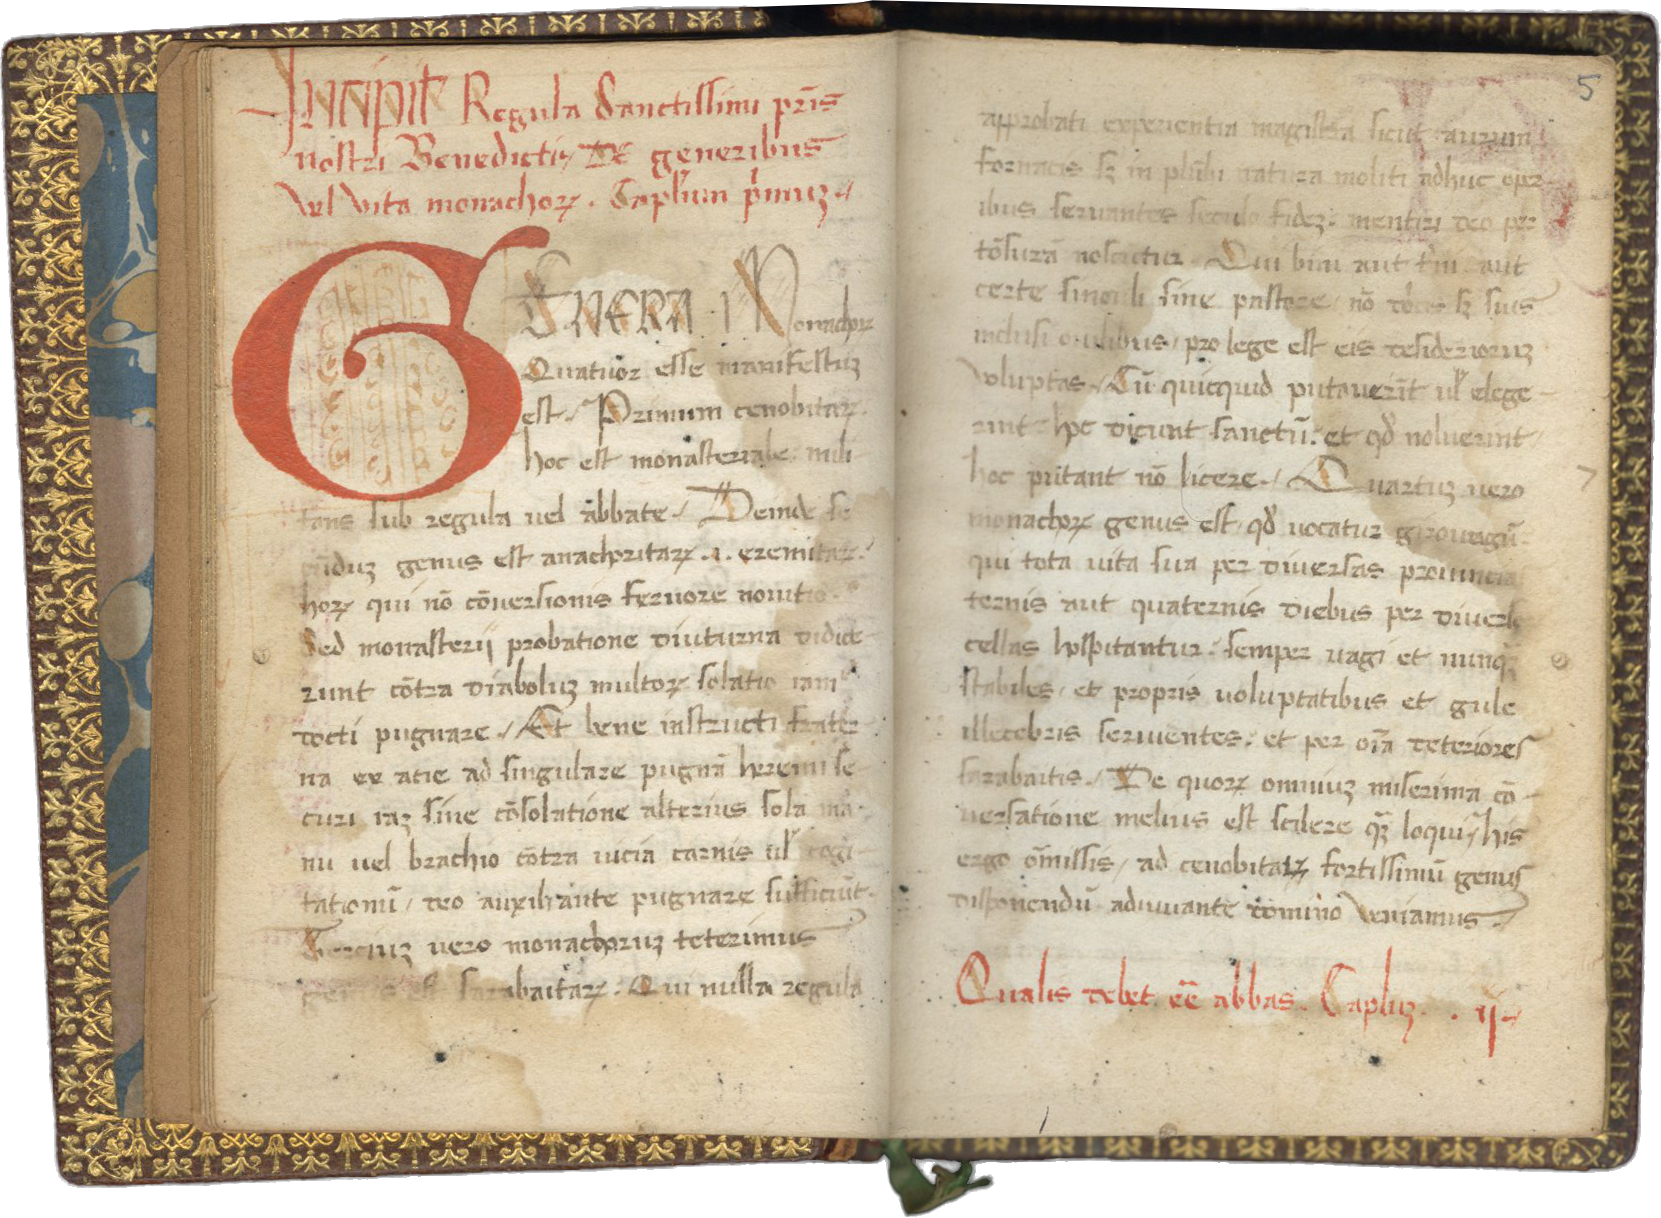 Incipit Regula Sanctissimi pr̄is
nostri Benedicti / De generibus
vel vita monachoꝝ . Caplum p̄muꝫ
GENERA Monachoꝝ
Quatuor esse manifestuꝫ
est / Primum cenobitaꝝ
hoc est monasteriale mili
tans sub regula uel abbate / Deinde se
cūduꝫ genus est anachoritaꝝ .i. eremitaꝝ
hoꝝ qui nō cōuersionis feruore nouitio
Sed monasterij probatione diuturna didice
runt cōtra diaboluꝫ multoꝝ solatio iam
docti pugnare / Et bene instructi frater
na ex acie ad singulare pugnā heremi se
curi iaꝫ sine cōsolatione alterius sola ma
nu uel brachio cōtra uicia carnis ul̄ cogi
tationū / deo auxiliante pugnare sufficiūt
Terciuꝫ uero monachoruꝫ deterimus
genus est sarabaitaꝝ . Qui nulla regula
5
approbati experientia magistra sicut aurum
fornacis sꝫ in plūbi natura moliti adhuc oper
ibus seruantes seculo fideꝫ . mentiri deo per
tōsurā noscutur . Qui bini aut t̄ni aut
certe singuli sine pastore / nō d̄nicis sꝫ suis
inclusi ouilibus / pro lege est eis desiderioruꝫ
voluptas / Cū quicquid putauerīt ul̄ elege
rint hoc dicunt sanctū . et qd̄ noluerint
hoc putant nō licere . / Quartuꝫ uero
monachoꝝ genus est / qd̄ uocatur girouagū
qui tota uita sua per diuersas prouincia
ternis aut quaternis diebus per diuers
cellas hospitantur . semper uagi et nunqꝫ
stabiles / et propris uoluptatibus et gule
illecebris seruientes . et per oīa deteriores
sarabaitis . / De quoꝝ omniuꝫ miserima cō
uersatione melius est scilere qꝫ loqui / his
ergo ōmissis / ad cenobitaꝝ fortissimū genus
disponendū adiuuante domino veniamus
Qualis debet eē abbas . Capluꝫ . ij